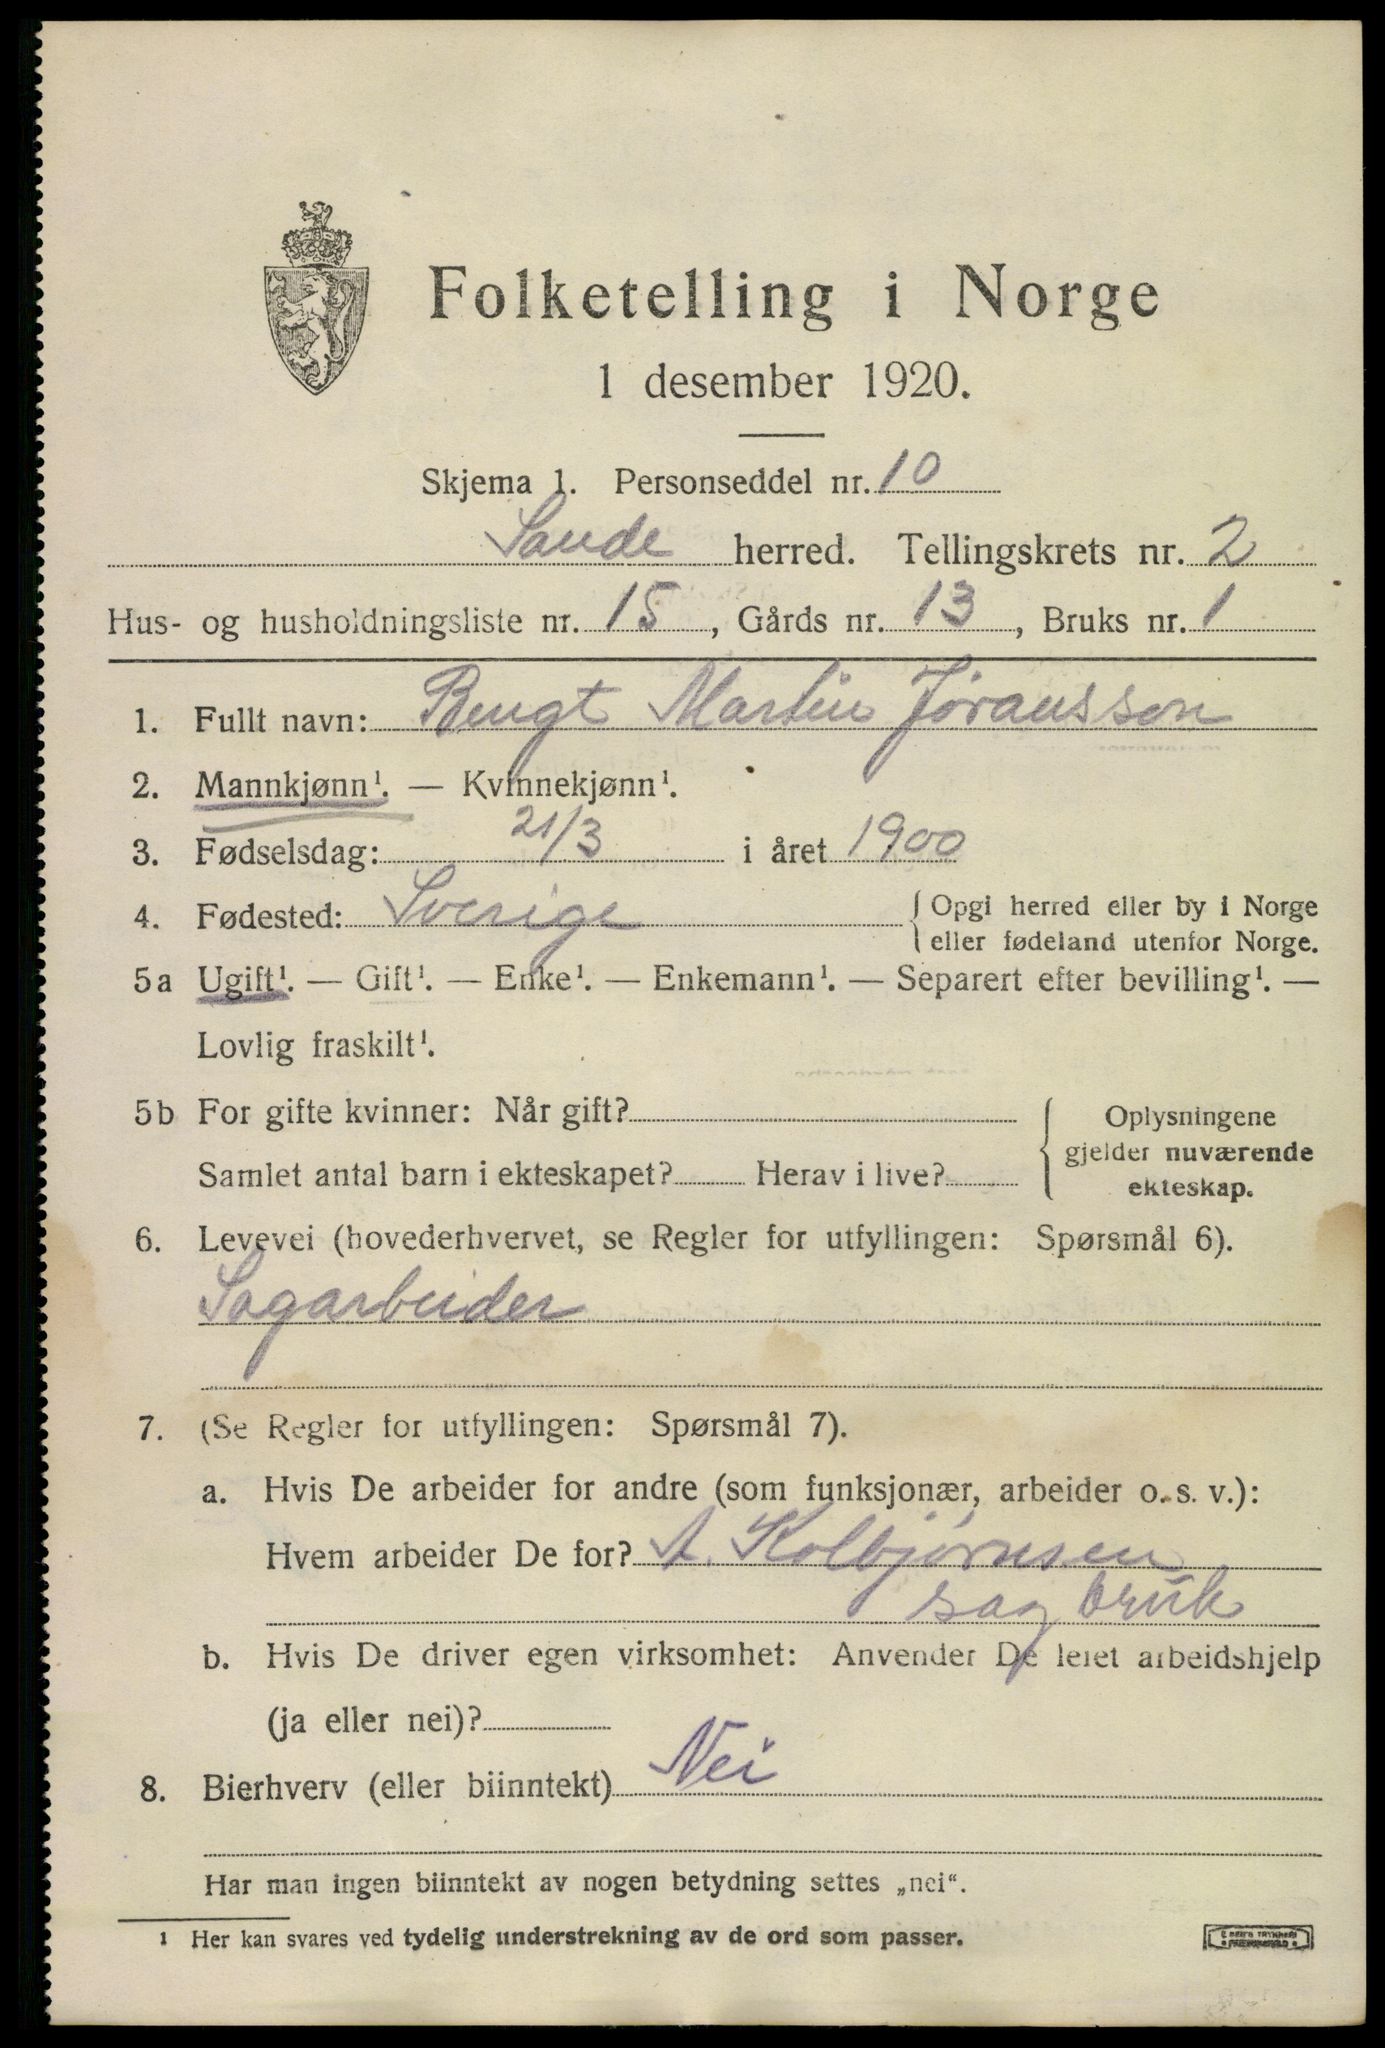 Folketelling i Norge
1 desember 1920.
Skjema 1. Personseddel nr. 10
Sande herred. Tellingskrets nr. 2
Hus- og husholdningsliste nr. 15, Gårds nr. 13, Bruks nr. 1
1. Fullt navn: Bengt Martin Jøransson
2. Mannkjønn¹. — Kvinnekjønn¹.
3. Fødselsdag: 21/3 i året 1900
4. Fødested: Sverige { Opgi herred eller by i Norge
eller fødeland utenfor Norge.
5a Ugift¹. — Gift¹. — Enke¹. — Enkemann¹. — Separert efter bevilling¹. —
Lovlig fraskilt¹.
5b For gifte kvinner: Når gift?
Samlet antal barn i ekteskapet? Herav i live?
Oplysningene
gjelder nuværende
ekteskap.
6. Levevei (hovederhvervet, se Regler for utfyllingen: Spørsmål 6).
Sagarbeider
7. (Se Regler for utfyllingen: Spørsmål 7).
a. Hvis De arbeider for andre (som funksjonær, arbeider o. s. v.):
Hvem arbeider De for? A. Kolbjørnsen
sag bruk
b. Hvis De driver egen virksomhet: Anvender De leiet arbeidshjelp
(ja eller nei)?
8. Bierhverv (eller biinntekt) Nei
Har man ingen biinntekt av nogen betydning settes „nei“.
1 Her kan svares ved tydelig understrekning av de ord som passer.